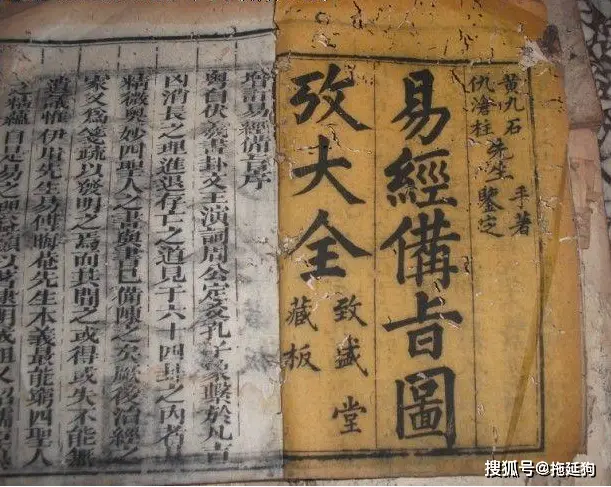 黄九石
仇滄柱
先生
手著
鑒定
易經備旨圖
攷大全
致盛堂
藏板
增訂易經備旨序
粤自伏羲畫卦文王演彖周公定爻孔子爲繫於凡吉
凶消長之理進退存亡之道見于六十四卦之內者其
精微奥妙四聖人之書與書已備陳之矣厥後治經之
家又爲箋疏以發明之爲而其間之或得或失不能無
遺議惟伊川先生易傳晦菴先生本義最能窮四聖人
之精蘊
搜狐号@拖延狗